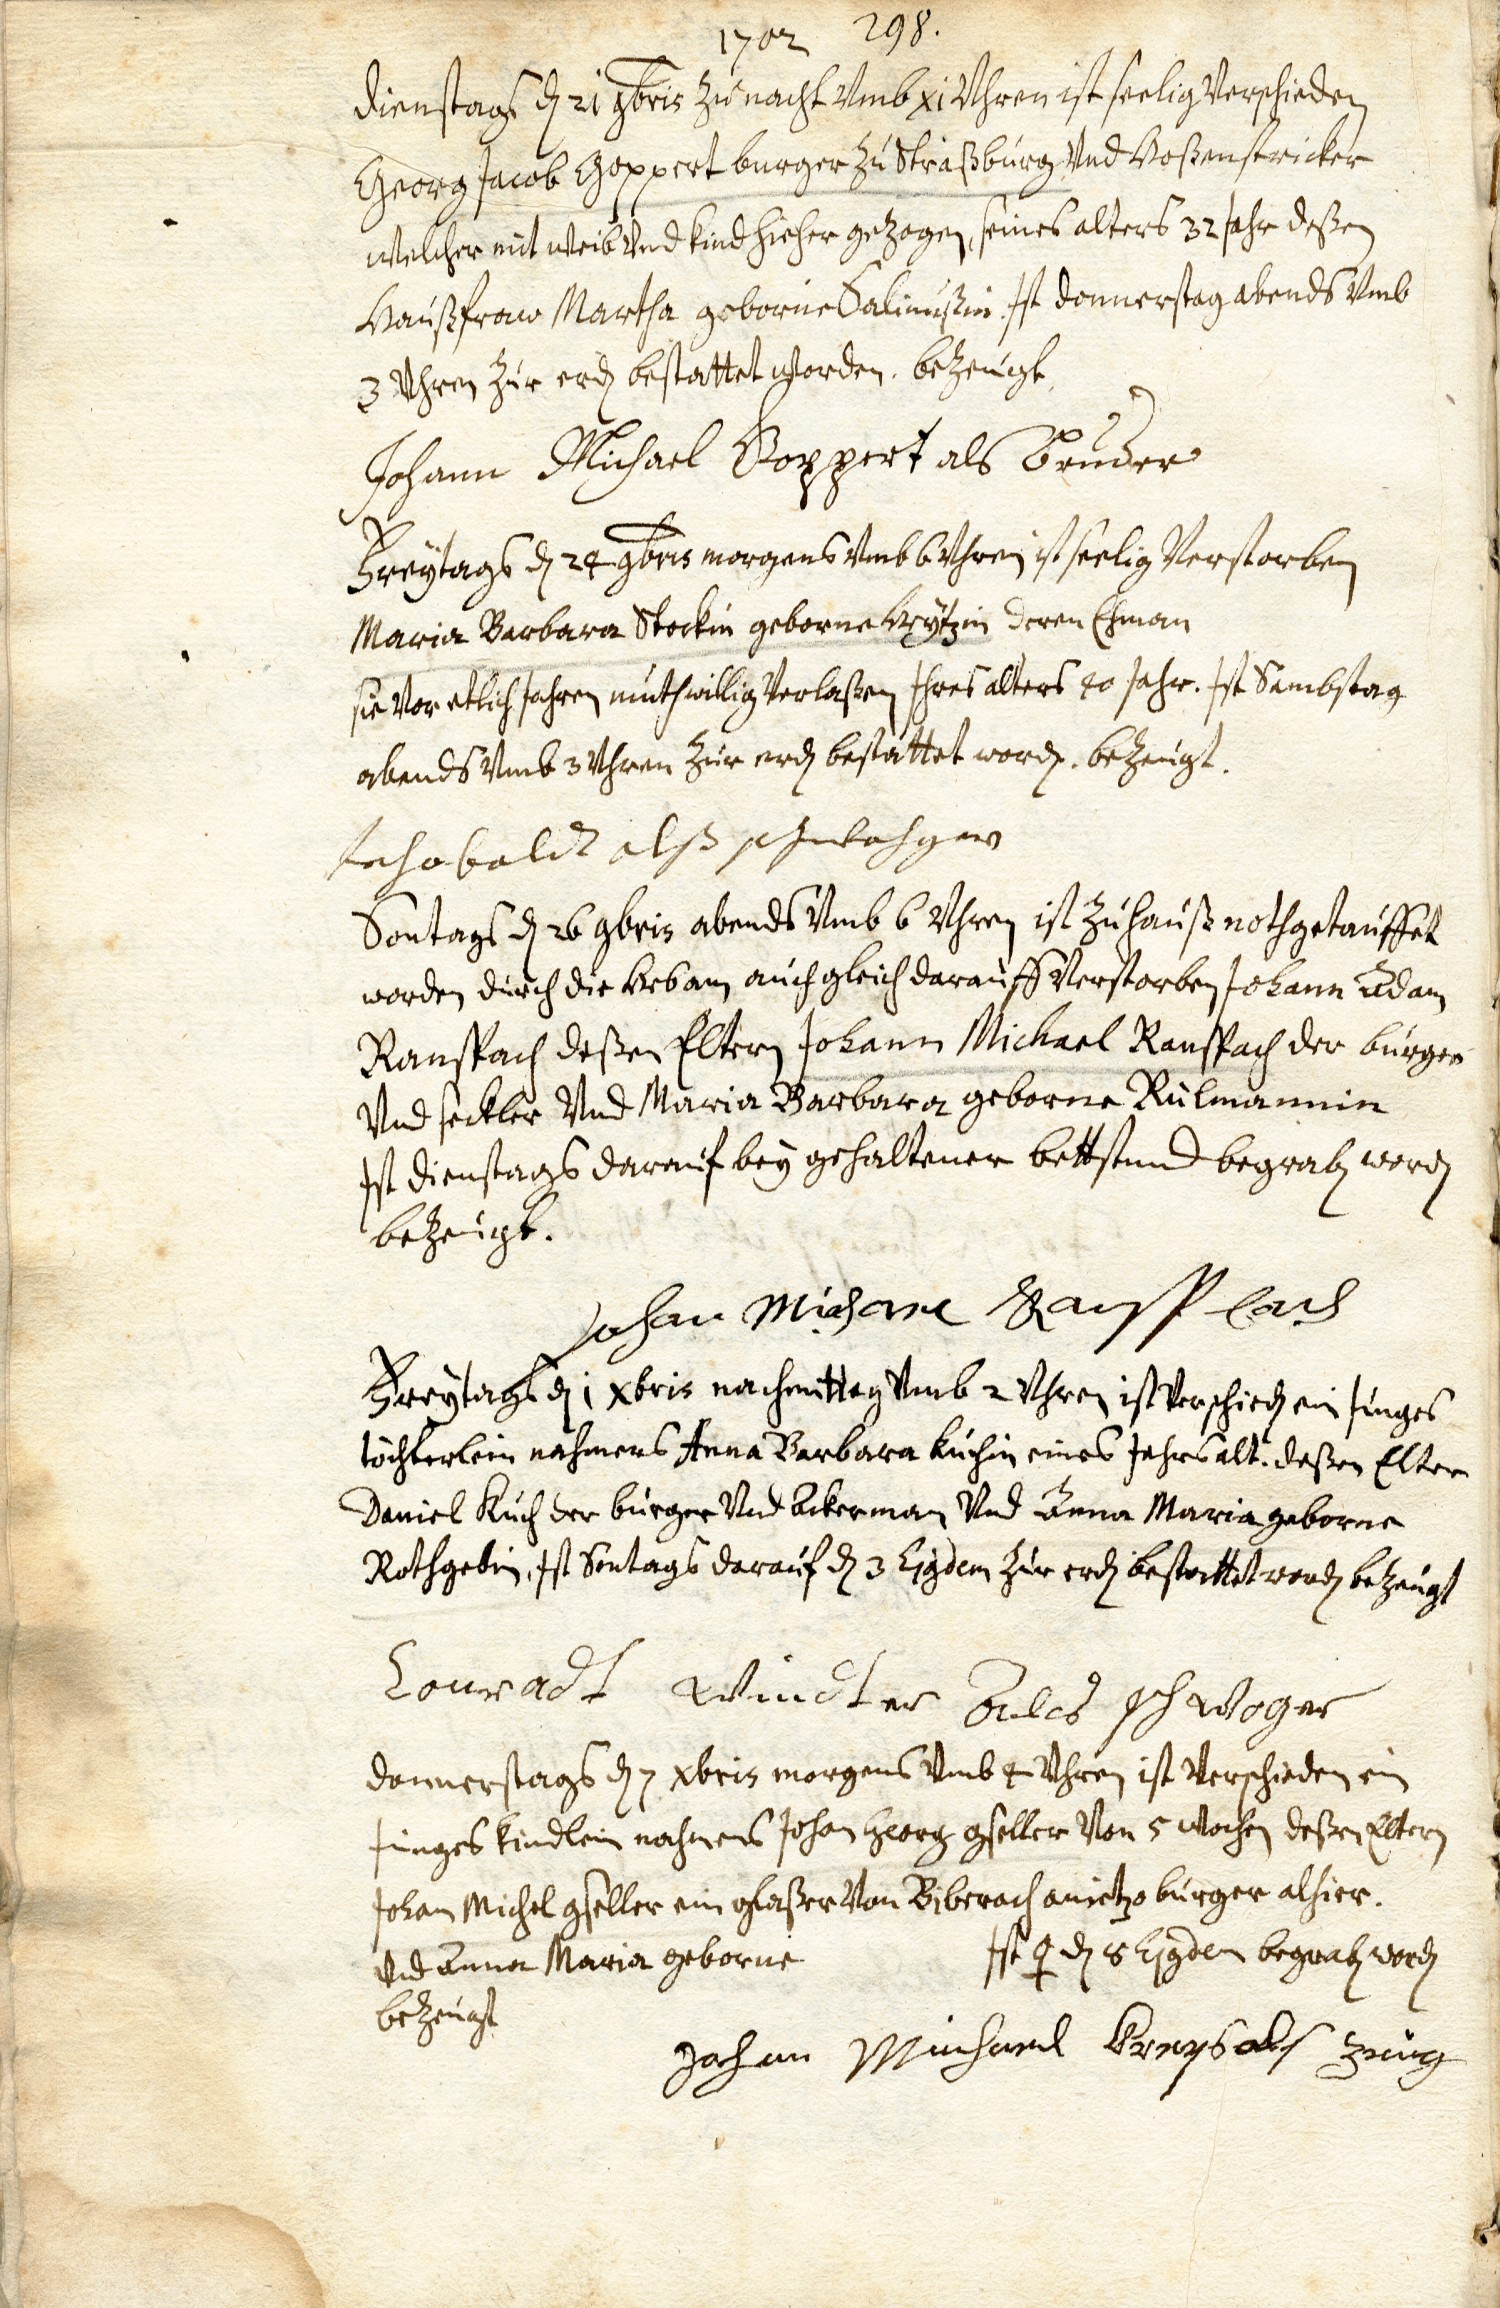 1702 298.
Dienstags dē 21 9bris zu nacht Vmb XI Vhren ist seelig Verschieden
Georg Jacob Goppert burger zu Straßburg Vnd Hoßenstricker
welcher mit weib Vnd kind hieher gezogen, seines alters 32 Jahr deßen
Haußfraw Martha geborne Salimußin. Ist donnerstag abends Vmb
3 Vhren zur erdē bestattet worden. bezeugt
Johann Michael Goppert als Bruder
Freytags dē 24 9bris morgens Vmb 6 Vhren ist seelig Verstorben
Maria Barbara Stockin geborne deren Ehman
sie Vor etlich Jahren muthwillig Verlaßen Ihres alters 40 Jahr. Ist Sambstag
abends Vmb 3 Vhren zur erdē bestattet wordē. bezeugt.
alß
Sontags dē 26 9bris abends Vmb 6 Vhren ist zu hauß nothgetauffet
worden durch die Hebam auch gleich darauff Verstorben Johann Adam
Ranspach deßen Eltern Johann Michael Ranspach der burger
Vnd seckler Vnd Maria Barbara geborne Rulmannin
Ist dienstags darauf bey gehaltener bettstund begrabē wordē
bezeugt.
Johan Michael Ranspach
Freytags dē 1 Xbris nachmittag Vmb 2 Vhren ist verschiedē ein Junges
töchterlein nahmens Anna Barbara Kuchin eines Jahrs alt. deßen Elter
Daniel Kuch der burger Vnd Ackerman Vnd Anna Maria geborne
Rothgebin, Ist Sontags darauf dē 3 Ejgdem zur erdē bestattet wordē bezeugt
Conradt Windter als schwoger
Donnerstags dē 7 Xbris morgens Vmb 4 Vhren ist Verschieden ein
Junges kindlein nahmens Johan Georg Gseller Von 5 wochen deßen Eltern
Johan Michel Gseller ein glaßer Von Biberach anietzo burger alhier.
Vnd Anna Maria geborne Ist ♀ dē 8 Ejgdem begrabē wordē
bezeugt
Johan Michael als Zeug